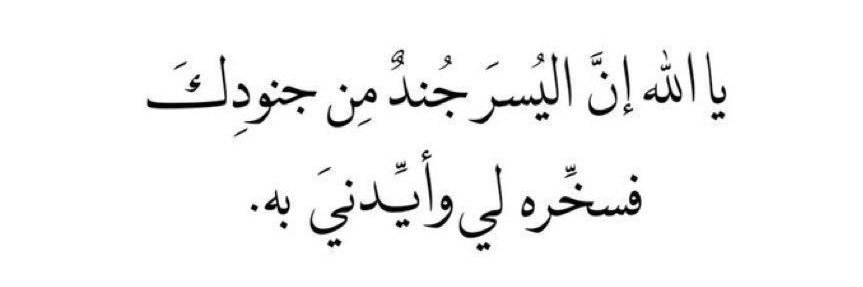 يا الله إنَّ اليُسرَ جُندٌ مِن جنودِكَ
فسخِّره لي وأيِّدنيَ به.